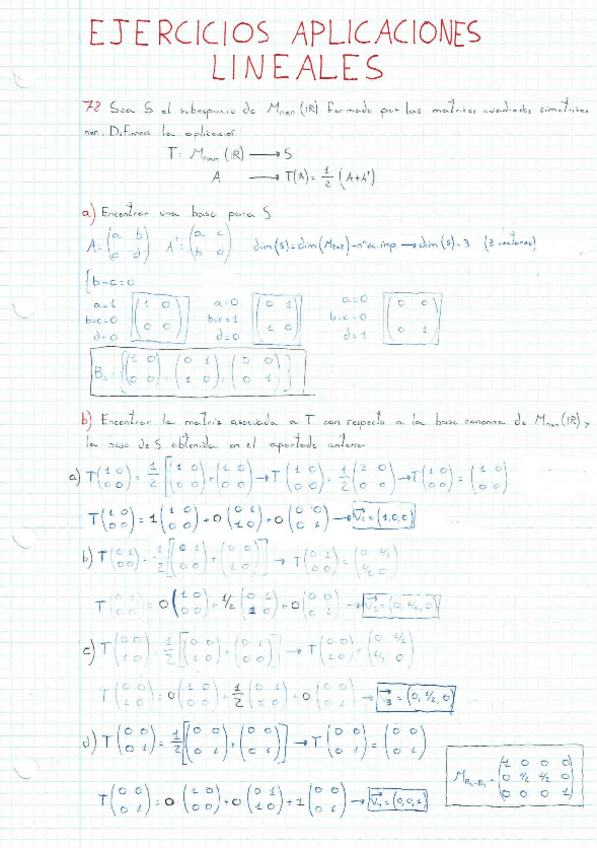 EJERCICIOS APLICACIONES
LINEALES
78 Sea S el subespacio de Mnxn (IR) formado por las matrices cuadradas simetricas
nxn. Definimos la aplicacion
T: Mnxn (IR) → S
A → T(A) = 1/2 (A+Aᵗ)
a) Encontrar una base para S
A = (a b; c d) Aᵗ = (a c; b d) dim(S) = dim(M2x2) - nº ec. imp → dim(S) = 3 (3 vectores)
{b-c=0
a=1 b=c=0 d=0 (1 0; 0 0) a=0 b=c=1 d=0 (0 1; 1 0) a=0 b=c=0 d=1 (0 0; 0 1)
Bs = {(1 0; 0 0), (0 1; 1 0), (0 0; 0 1)}
b) Encontrar la matriz asociada a T con respecto a la base canonica de Mnxn (IR) y
la base de S obtenida en el apartado anterior
a) T(1 0; 0 0) = 1/2 [(1 0; 0 0) + (1 0; 0 0)] → T(1 0; 0 0) = 1/2 (2 0; 0 0) → T(1 0; 0 0) = (1 0; 0 0)
T(1 0; 0 0) = 1(1 0; 0 0) + 0(0 1; 1 0) + 0(0 0; 0 1) → V1 = (1,0,0)
b) T(0 1; 0 0) = 1/2 [(0 1; 0 0) + (0 0; 1 0)] → T(0 1; 0 0) = (0 1/2; 1/2 0)
T(0 1; 0 0) = 0(1 0; 0 0) + 1/2 (0 1; 1 0) + 0(0 0; 0 1) → V2 = (0, 1/2, 0)
c) T(0 0; 1 0) = 1/2 [(0 0; 1 0) + (0 1; 0 0)] → T(0 0; 1 0) = (0 1/2; 1/2 0)
T(0 0; 1 0) = 0(1 0; 0 0) + 1/2 (0 1; 1 0) + 0(0 0; 0 1) → V3 = (0, 1/2, 0)
d) T(0 0; 0 1) = 1/2 [(0 0; 0 1) + (0 0; 0 1)] → T(0 0; 0 1) = (0 0; 0 1)
T(0 0; 0 1) = 0·(1 0; 0 0) + 0(0 1; 1 0) + 1(0 0; 0 1) → V4 = (0,0,1)
= (1 0 0 0; 0 1/2 1/2 0; 0 0 0 1)